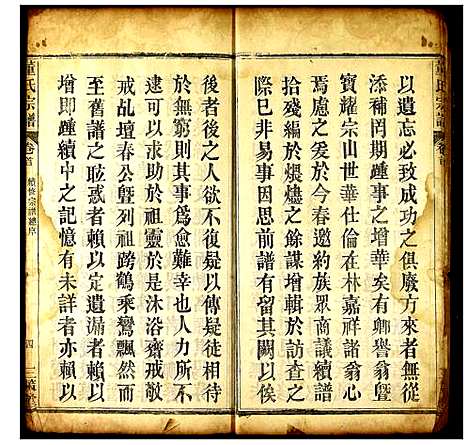 以遺志必致成功之俱廢方來無從
添補罔期踵事之增華矣有卿譽賀
寶耀宗山世華佐在林嘉祥諸翁心
焉慮之爰於今春邀約族眾商議續譜
拾殘編於煨燼之餘謀增輯於訪查之
際巳非易事因思前譜有區其闕以俟
董氏宗譜
卷首
後者後之人欲不復疑以傳疑徒相待
於無窮則其事為愈難幸也人力所不
可以求助於祖靈於是沐浴齋戒敬
乩壇春公暨列祖跨鶴乘鸞飄然而
至舊譜之眩惑者賴以定遺漏者賴以
增即踵續中之記憶有未詳者亦賴以
董氏宗譜
卷首
續修宗譜總序
四
三策堂